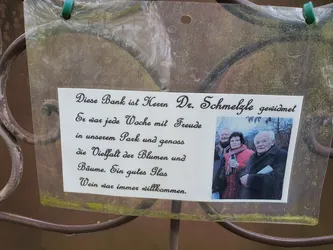 Diese Bank ist Herrn Dr. Schmelzle gewidmet
Er war jede Woche mit Freude
in unserem Park und genoss
die Vielfalt der Blumen und
Bäume. Ein gutes Glas
Wein war immer willkommen.